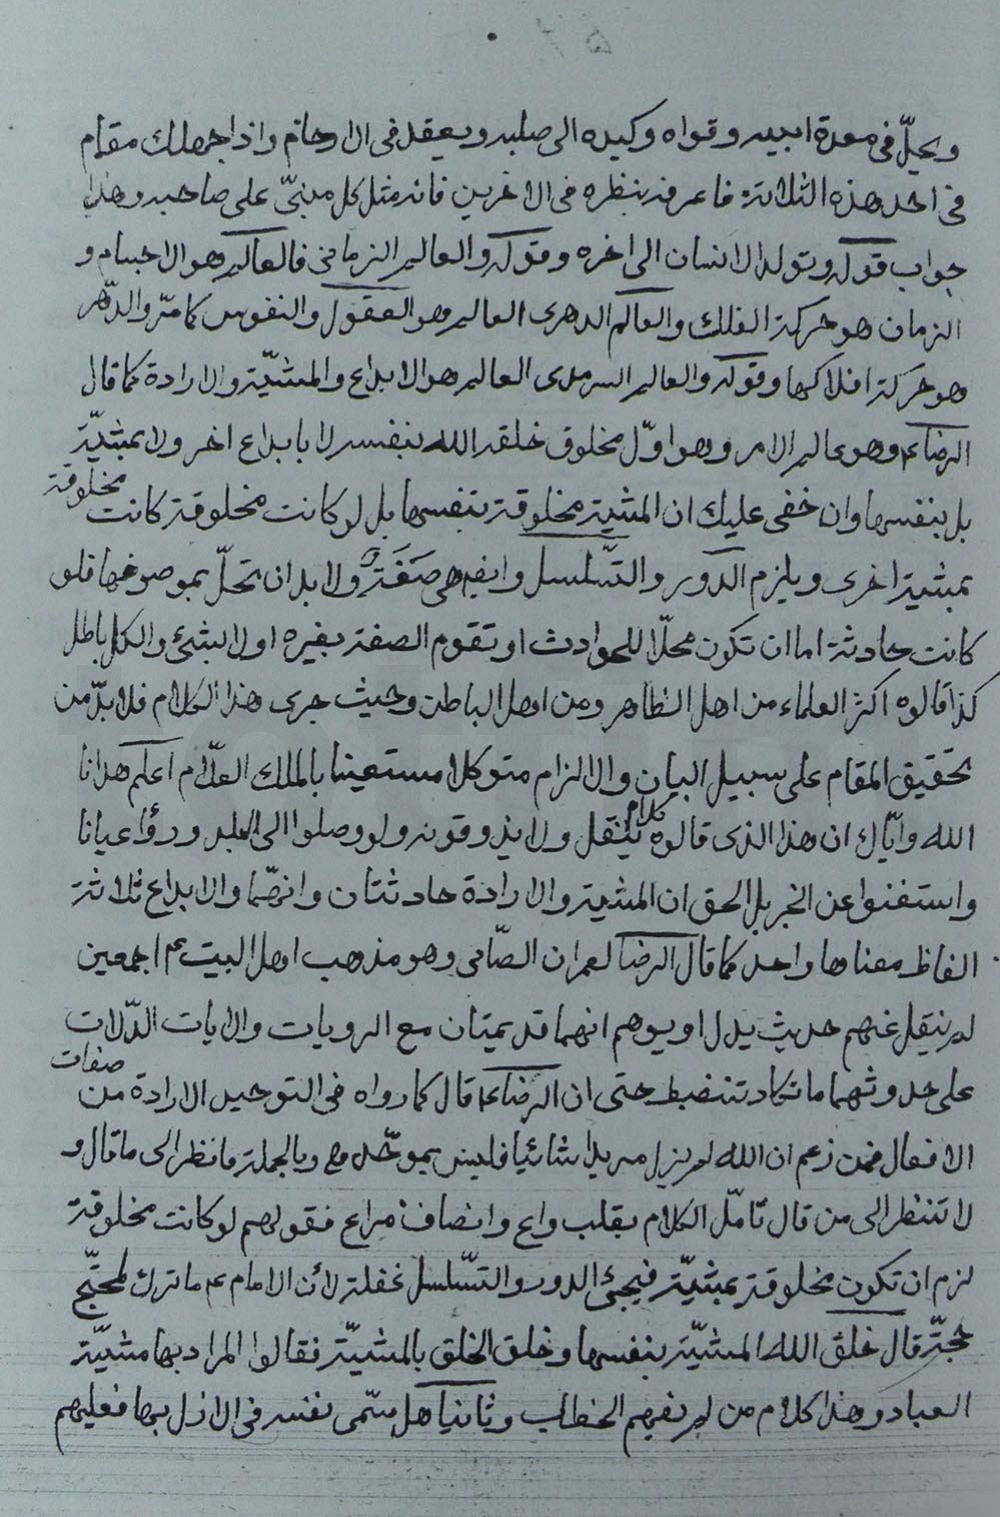 ويحلّ في معدة ابيه وقواه وكبده الى صلبه ويعقد في الارحام واذا جهلك مقام
في احد هذه الثلاثة فاعرفه بنظره في الاخرين فانه مثل كل مبنيّ على صاحبه وهذا
جواب قوله وتولد الانسان الى اخره وقوله والعالم الزماني فالعالم هو الاجسام و
الزمان هو حركة الفلك والعالم الدهرى العالم هو العقول والنفوس كما مرّ والدّهر
هو حركة افلاكها وقوله والعالم السرمدى العالم هو الابداع والمشيّة والارادة كما قال
الرضاء وهو عالم الامر وهو اوّل مخلوق خلقه الله بنفسه لا بابداع اخر ولا بمشيّة
بل بنفسها وان خفى عليك ان المشية مخلوقة بنفسها بل لو كانت مخلوقة كانت مخلوقة
بمشية اخرى ويلزم الدّور والتّسلسل وايضا هى صَفَة ولا بد ان تحلّ بموصوفها فلو
كانت حادثة اما ان تكون محلّا للحوادث او تقوم الصفة بغيره او لا بشئ والكل باطل
كذا قالوه اكثر العلماء من اهل الظاهر ومن اهل الباطن وحيث جرى هذا الكلام فلا بدّ من
تحقيق المقام على سبيل البيان والالزام متوكلا مستعينا بالملك العلّام اعلم هدانا
الله وايّاك ان هذا الذى قالوه كلام ينقل ولا يذوقونه ولو وصلوا الى البلد ورؤا عيانا
واستغنوا عن الخبر بل الحق ان المشية والارادة حادثتان وانهما والابداع ثلاثة
الفاظ معناها واحد كما قال الرضا لعمران الصّابى وهو مذهب اهل البيت ع اجمعين
لم ينقل عنهم حديث يدل او يوهم انهما قديمتان مع الرويات والايات الدّلات
على حدوثهما ما تكاد تنضبط حتى ان الرضاء قال كما رواه في التوحيد الارادة من صفات
الافعال فمن زعم ان الله لم يزل مريدا شائيا فليس بموحّد وبالجملة فانظر الى ما قال و
لا تنظر الى من قال تامّل الكلام بقلب واع وانصاف مراع فقولهم لو كانت مخلوقة
لزم ان تكون مخلوقة بمشيّة فيجئ الدور والتّسلسل غفلة لأن الامام ع ما ترك لمحتجّ
حجّة قال خلق الله المشيّة بنفسها وخلق الخلق بالمشيّة فقالوا المراد بها مشيّة
العباد وهذا كلام من لم يفهم الخطاب وثانيا هل سمّى نفسه في الازل بها فعليهم